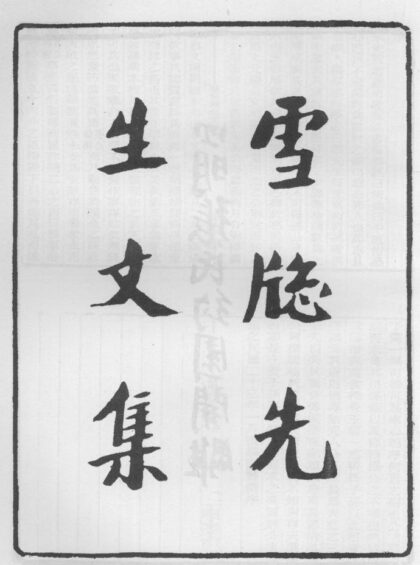 雪牎先
生文集